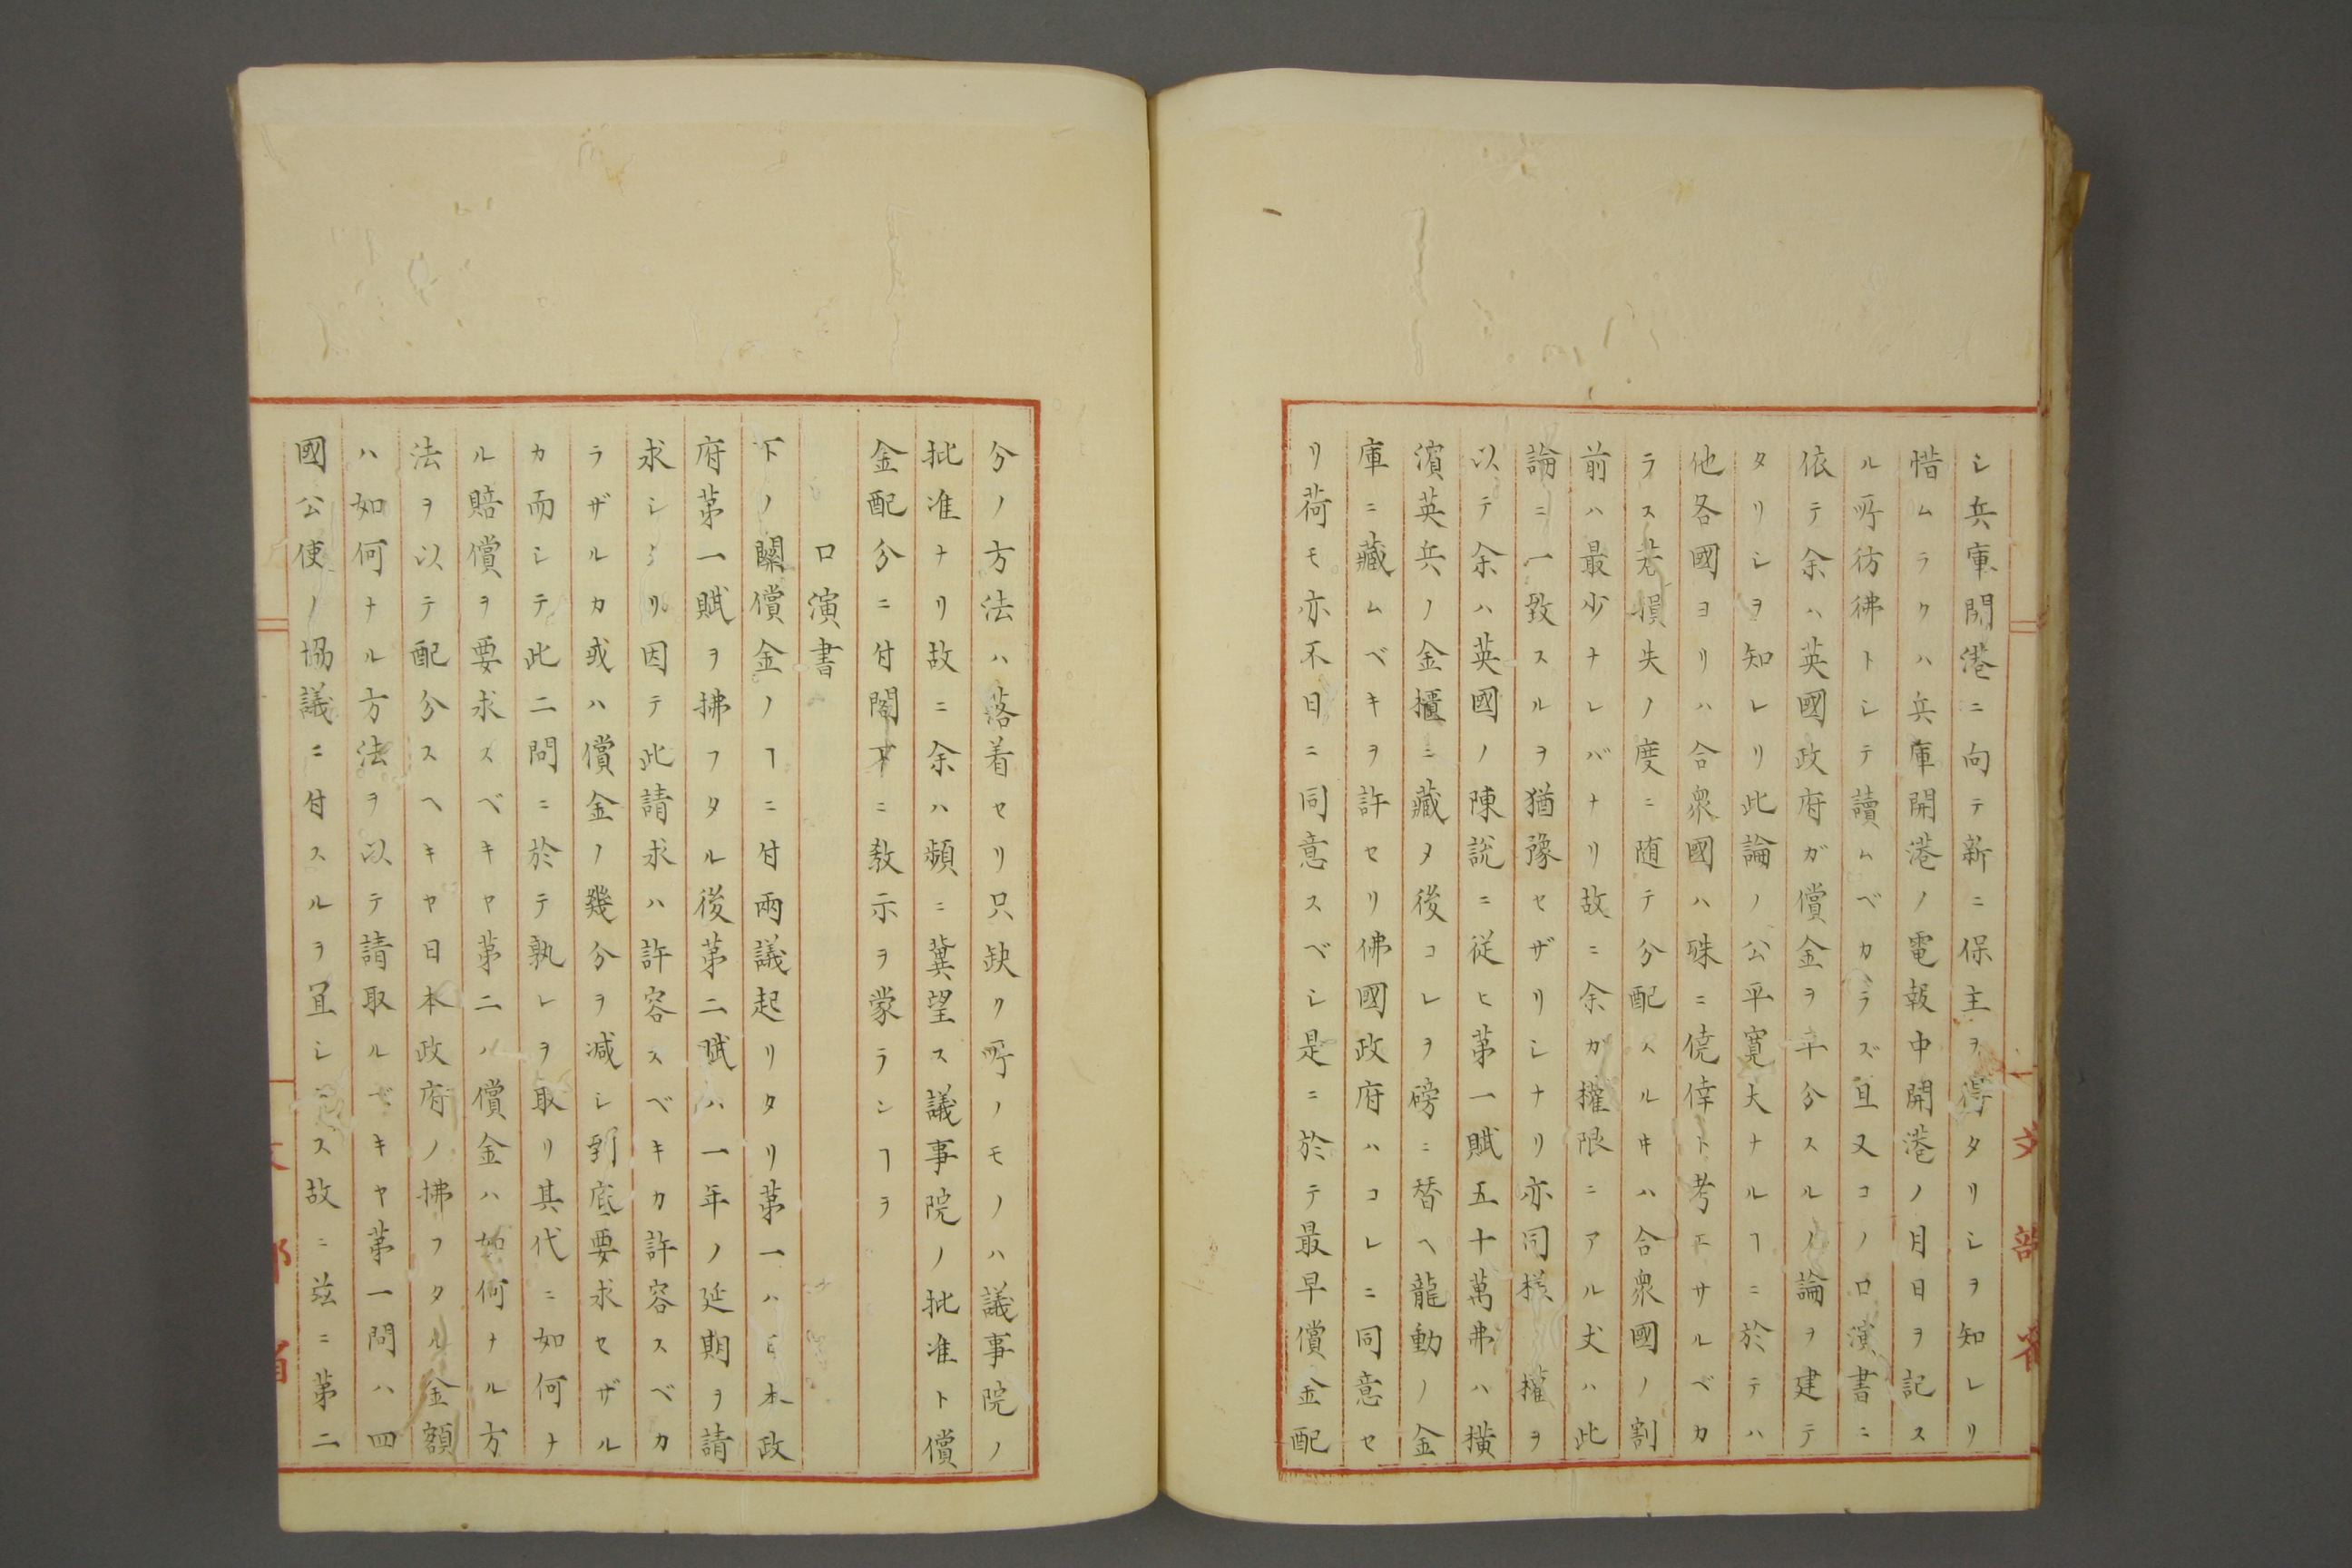 シ兵庫開港ニ向テ新ニ保主ヲ得タリシヲ知レリ
惜ムラクハ兵庫開港ノ電報中開港ノ月日ヲ記ス
ル所彷彿トシテ讀ムベカラズ且又コノ口演書ニ
依テ余ハ英國政府ガ償金ヲ平分スルノ論ヲ建テ
タリシヲ知レリ此論ノ公平寛大ナルヿニ於テハ
他各國ヨリハ合衆國ハ殊ニ僥倖ト考エサルベカ
ラス若損失ノ度ニ随テ分配スルキハ合衆國ノ割
前ハ最少ナレバナリ故ニ余ガ權限ニアル丈ハ此
論ニ一致スルヲ猶豫セザリシナリ亦同様權ヲ
以テ余ハ英國ノ陳說ニ従ヒ第一賦五十萬弗ハ横
濱英兵ノ金櫃ニ藏メ後コレヲ磅ニ替ヘ龍動ノ金
庫ニ藏ムベキヲ許セリ佛國政府ハコレニ同意セ
リ荷モ亦不日ニ同意スベシ是ニ於テ最早償金配
文部省
分ノ方法ハ落着セリ只缺ク所ノモノハ議事院ノ
批准ナリ故ニ余ハ頻ニ冀望ス議事院ノ批准ト償
金配分ニ付閣下ニ教示ヲ蒙ランヿヲ
口演書
下ノ關償金ノヿニ付兩議起リタリ第一ハ日本政
府第一賦ヲ拂フタル後第二賦ハ一年ノ延期ヲ請
求シタリ因テ此請求ハ許容スベキカ許容スベカ
ラザルカ或ハ償金ノ幾分ヲ减シ到底要求セザル
カ而シテ此二問ニ於テ孰レヲ取リ其代ニ如何ナ
ル賠償ヲ要求スベキヤ第二ハ償金ハ如何ナル方
法ヲ以テ配分スヘキヤ日本政府ノ拂フタル金額
ハ如何ナル方法ヲ以テ請取ルベキヤ第一問ハ四
國公使ノ協議ニ付スルヲ宜シトス故ニ茲ニ第二
文部省